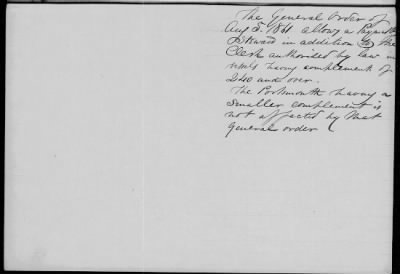 The General Order of
Aug 5. 1861 allows a Paymaster
Steward in addition to the
Clerk authorized by law in
having complement of
240 and over.
The Portsmouth having a
smaller complement is
not affected by that
General order